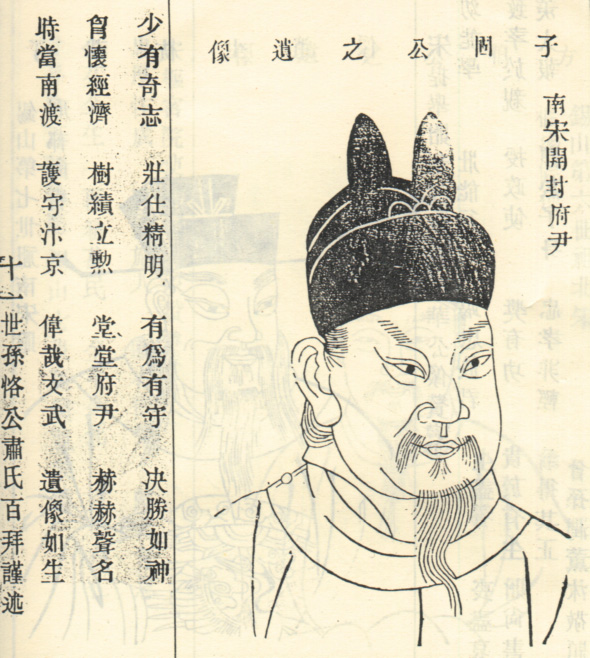 子固公之遺像
南宋開封府尹
少有奇志 壯仕精明 有爲有守 決勝如神
胷懷經濟 樹績立勲 堂堂府尹 赫赫聲名
時當南渡 護守汴京 偉哉文武 遺像如生
十一世孫恪公肅氏百拜謹述